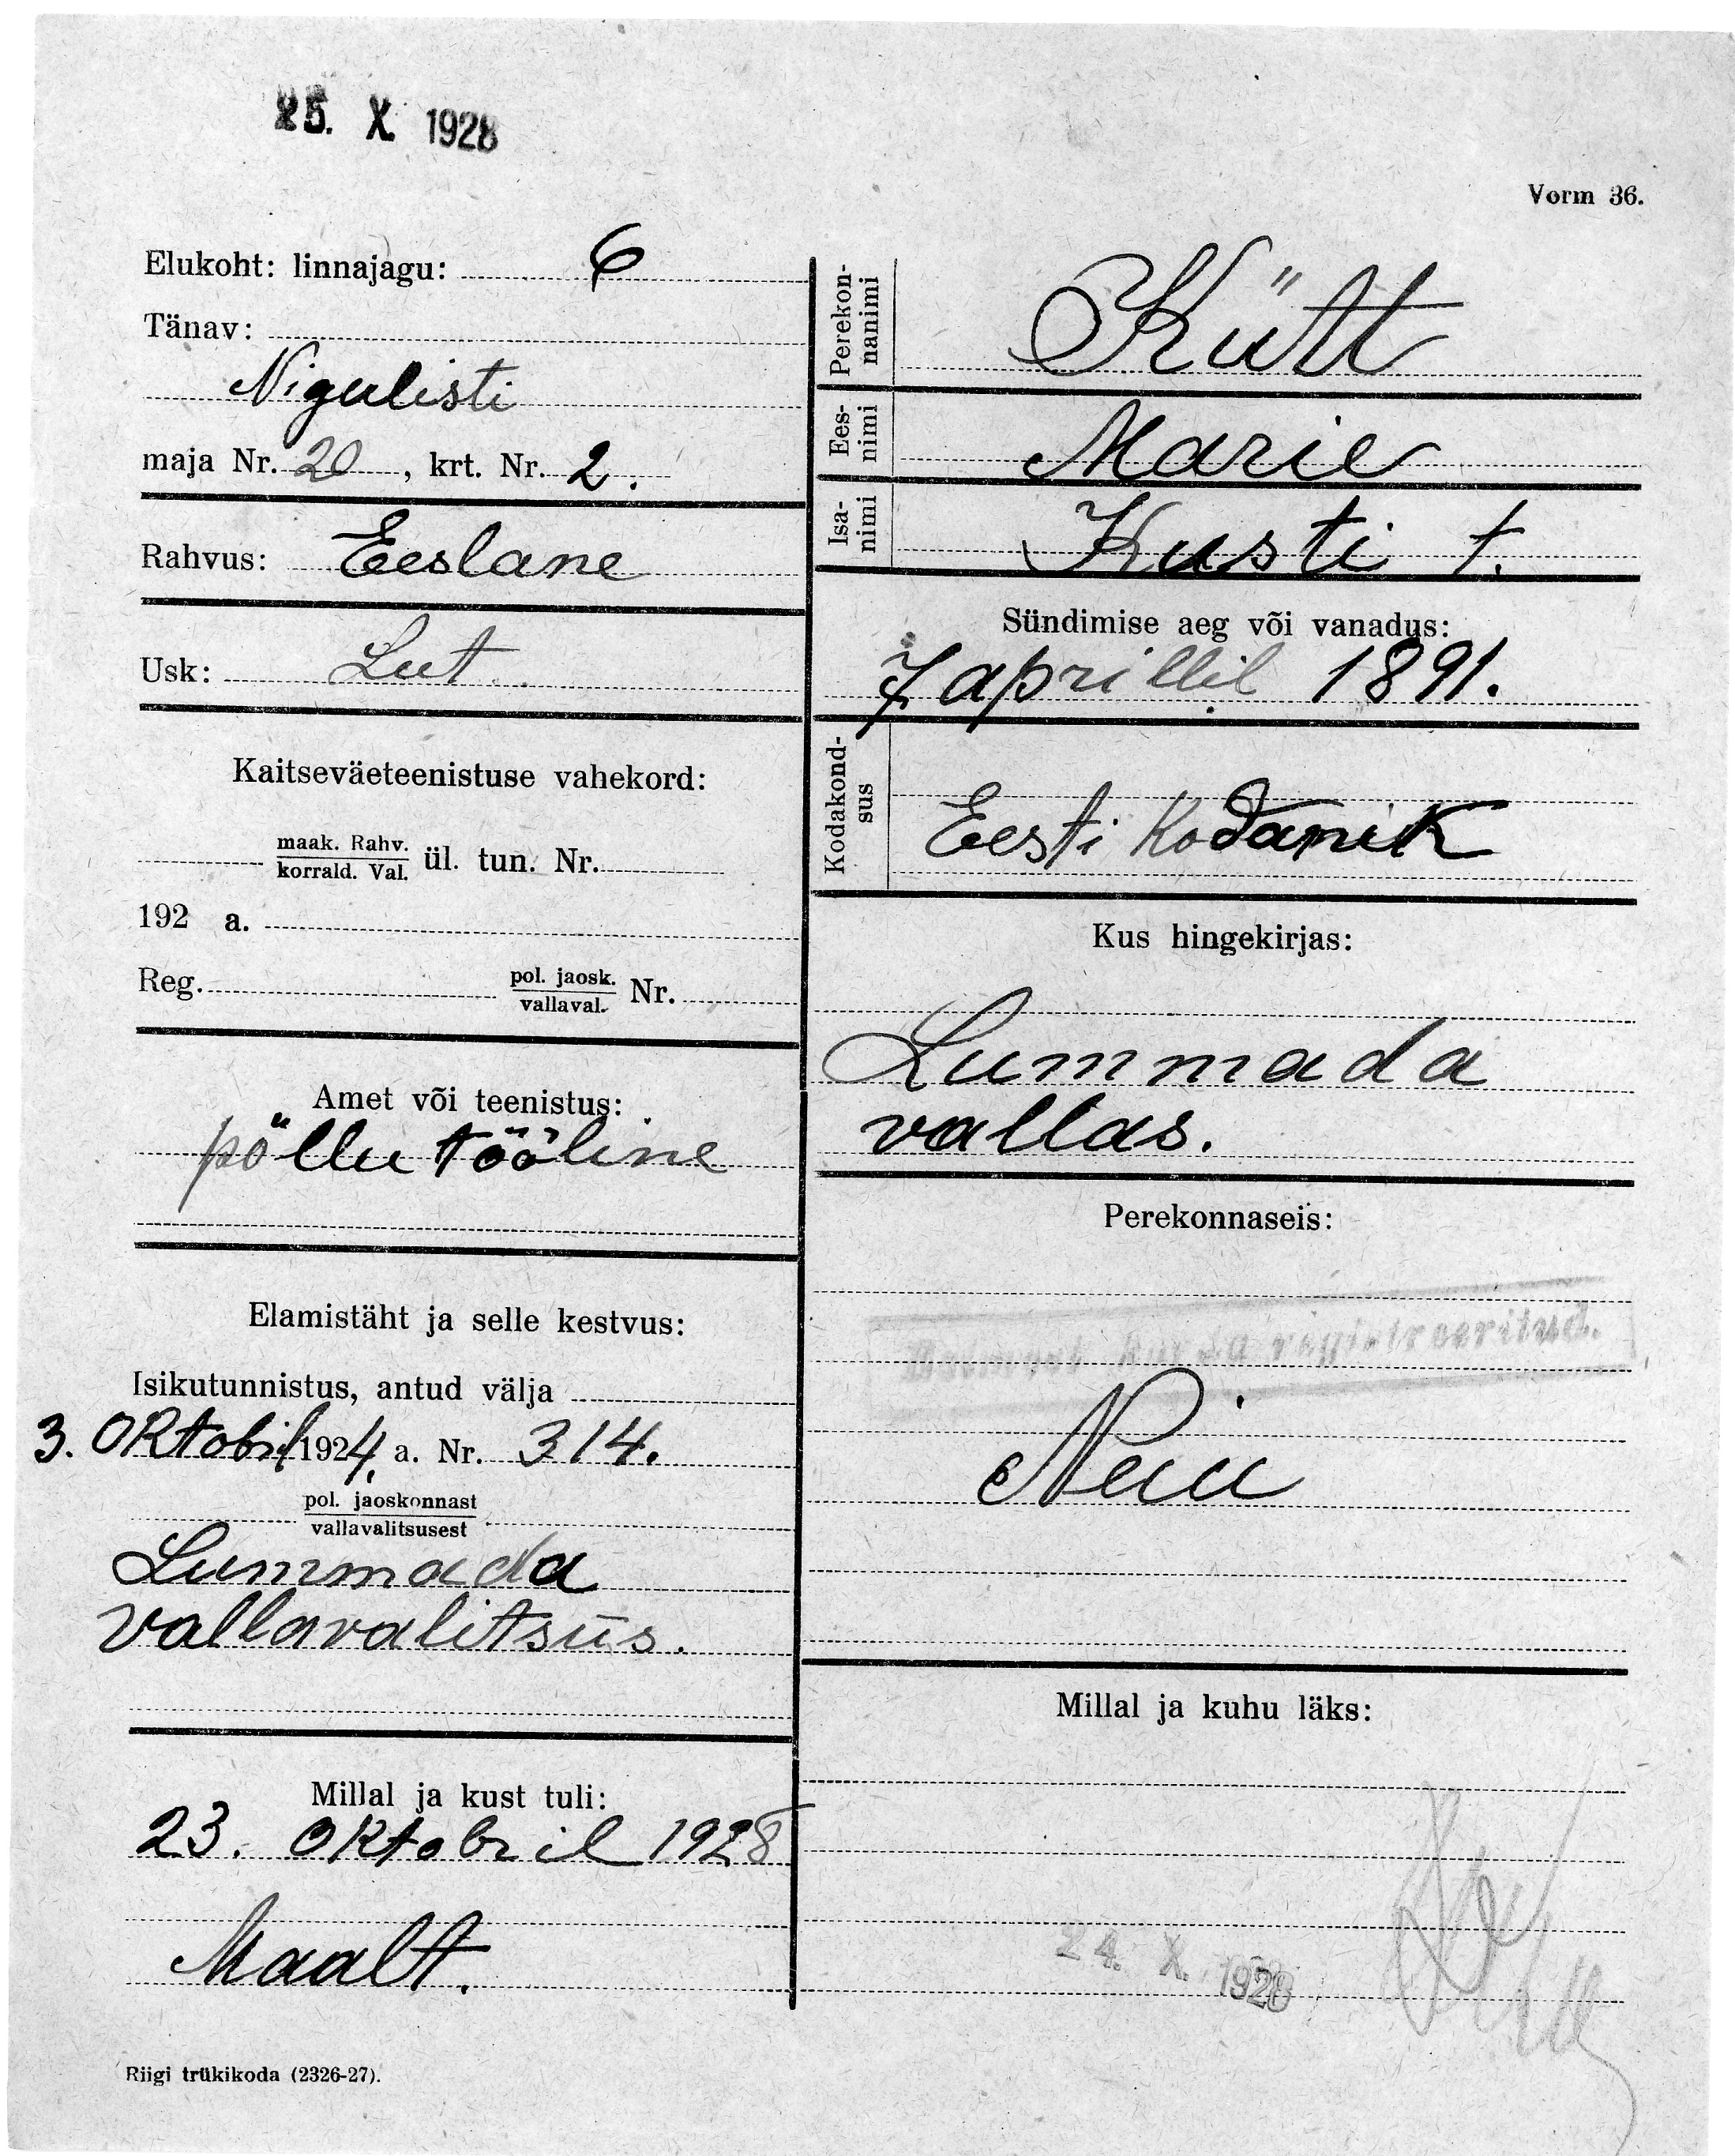 25. X. 1928
Vorm 36.
Elukoht: linnajagu: 6
Tänav:
Nigulisti
maja Nr. 20, krt. Nr. 2.
Rahvus: Eeslane
Usk: Lut.
Kaitseväeteenistuse vahekord:
maak. Rahv.
korrald. Val.
ül. tun. Nr.
192 a.
Reg. pol. jaosk. Nr.
vallaval.
Amet või teenistus:
põllu tööline
Elamistäht ja selle kestvus:
Isikutunnistus, antud välja
3. Oktobril 1924. a. Nr. 314.
pol. jaoskonnast
vallavalitsusest
Lummada
vallavalitsus.
Millal ja kust tuli:
23. Oktobril 1928
Maalt.
Riigi trükikoda (2326-27).
Perekon-
nanimi
Kütt
Ees-
nimi
Marie
Isa-
nimi
Kusti t.
Sündimise aeg või vanadus:
7 aprillil 1891.
Kodakond-
sus
Eesti Kodanik
Kus hingekirjas:
Lummada
vallas.
Perekonnaseis:
registreeritud.
Neiu
Millal ja kuhu läks:
24. X. 1928